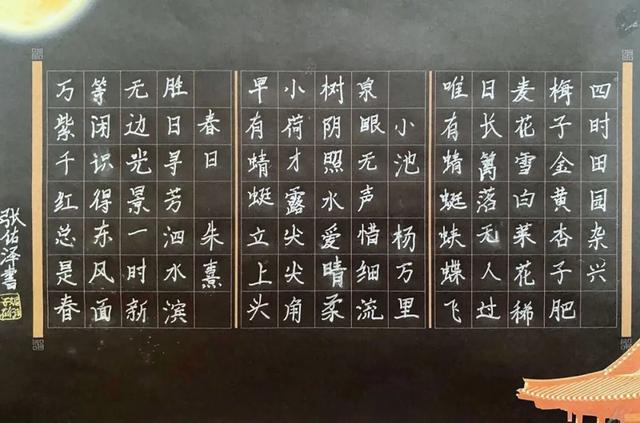 四时田园杂兴
梅子金黄杏子肥
麦花雪白菜花稀
日长篱落无人过
唯有蜻蜓蛱蝶飞
小池 杨万里
泉眼无声惜细流
树阴照水爱晴柔
小荷才露尖尖角
早有蜻蜓立上头
春日 朱熹
胜日寻芳泗水滨
无边光景一时新
等闲识得东风面
万紫千红总是春
张佑泽書